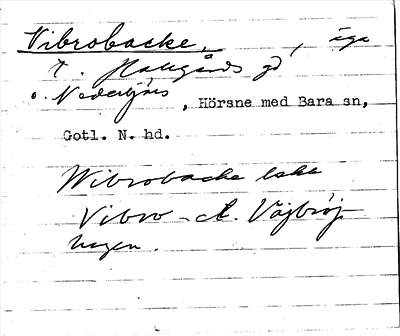 Vibrobacke, äga
t. Hallgårds gd
o. Nederbjärs, Hörsne med Bara sn,
Gotl. N. hd.
Wibrobacke
Vibro - Vajbröj
hagen.